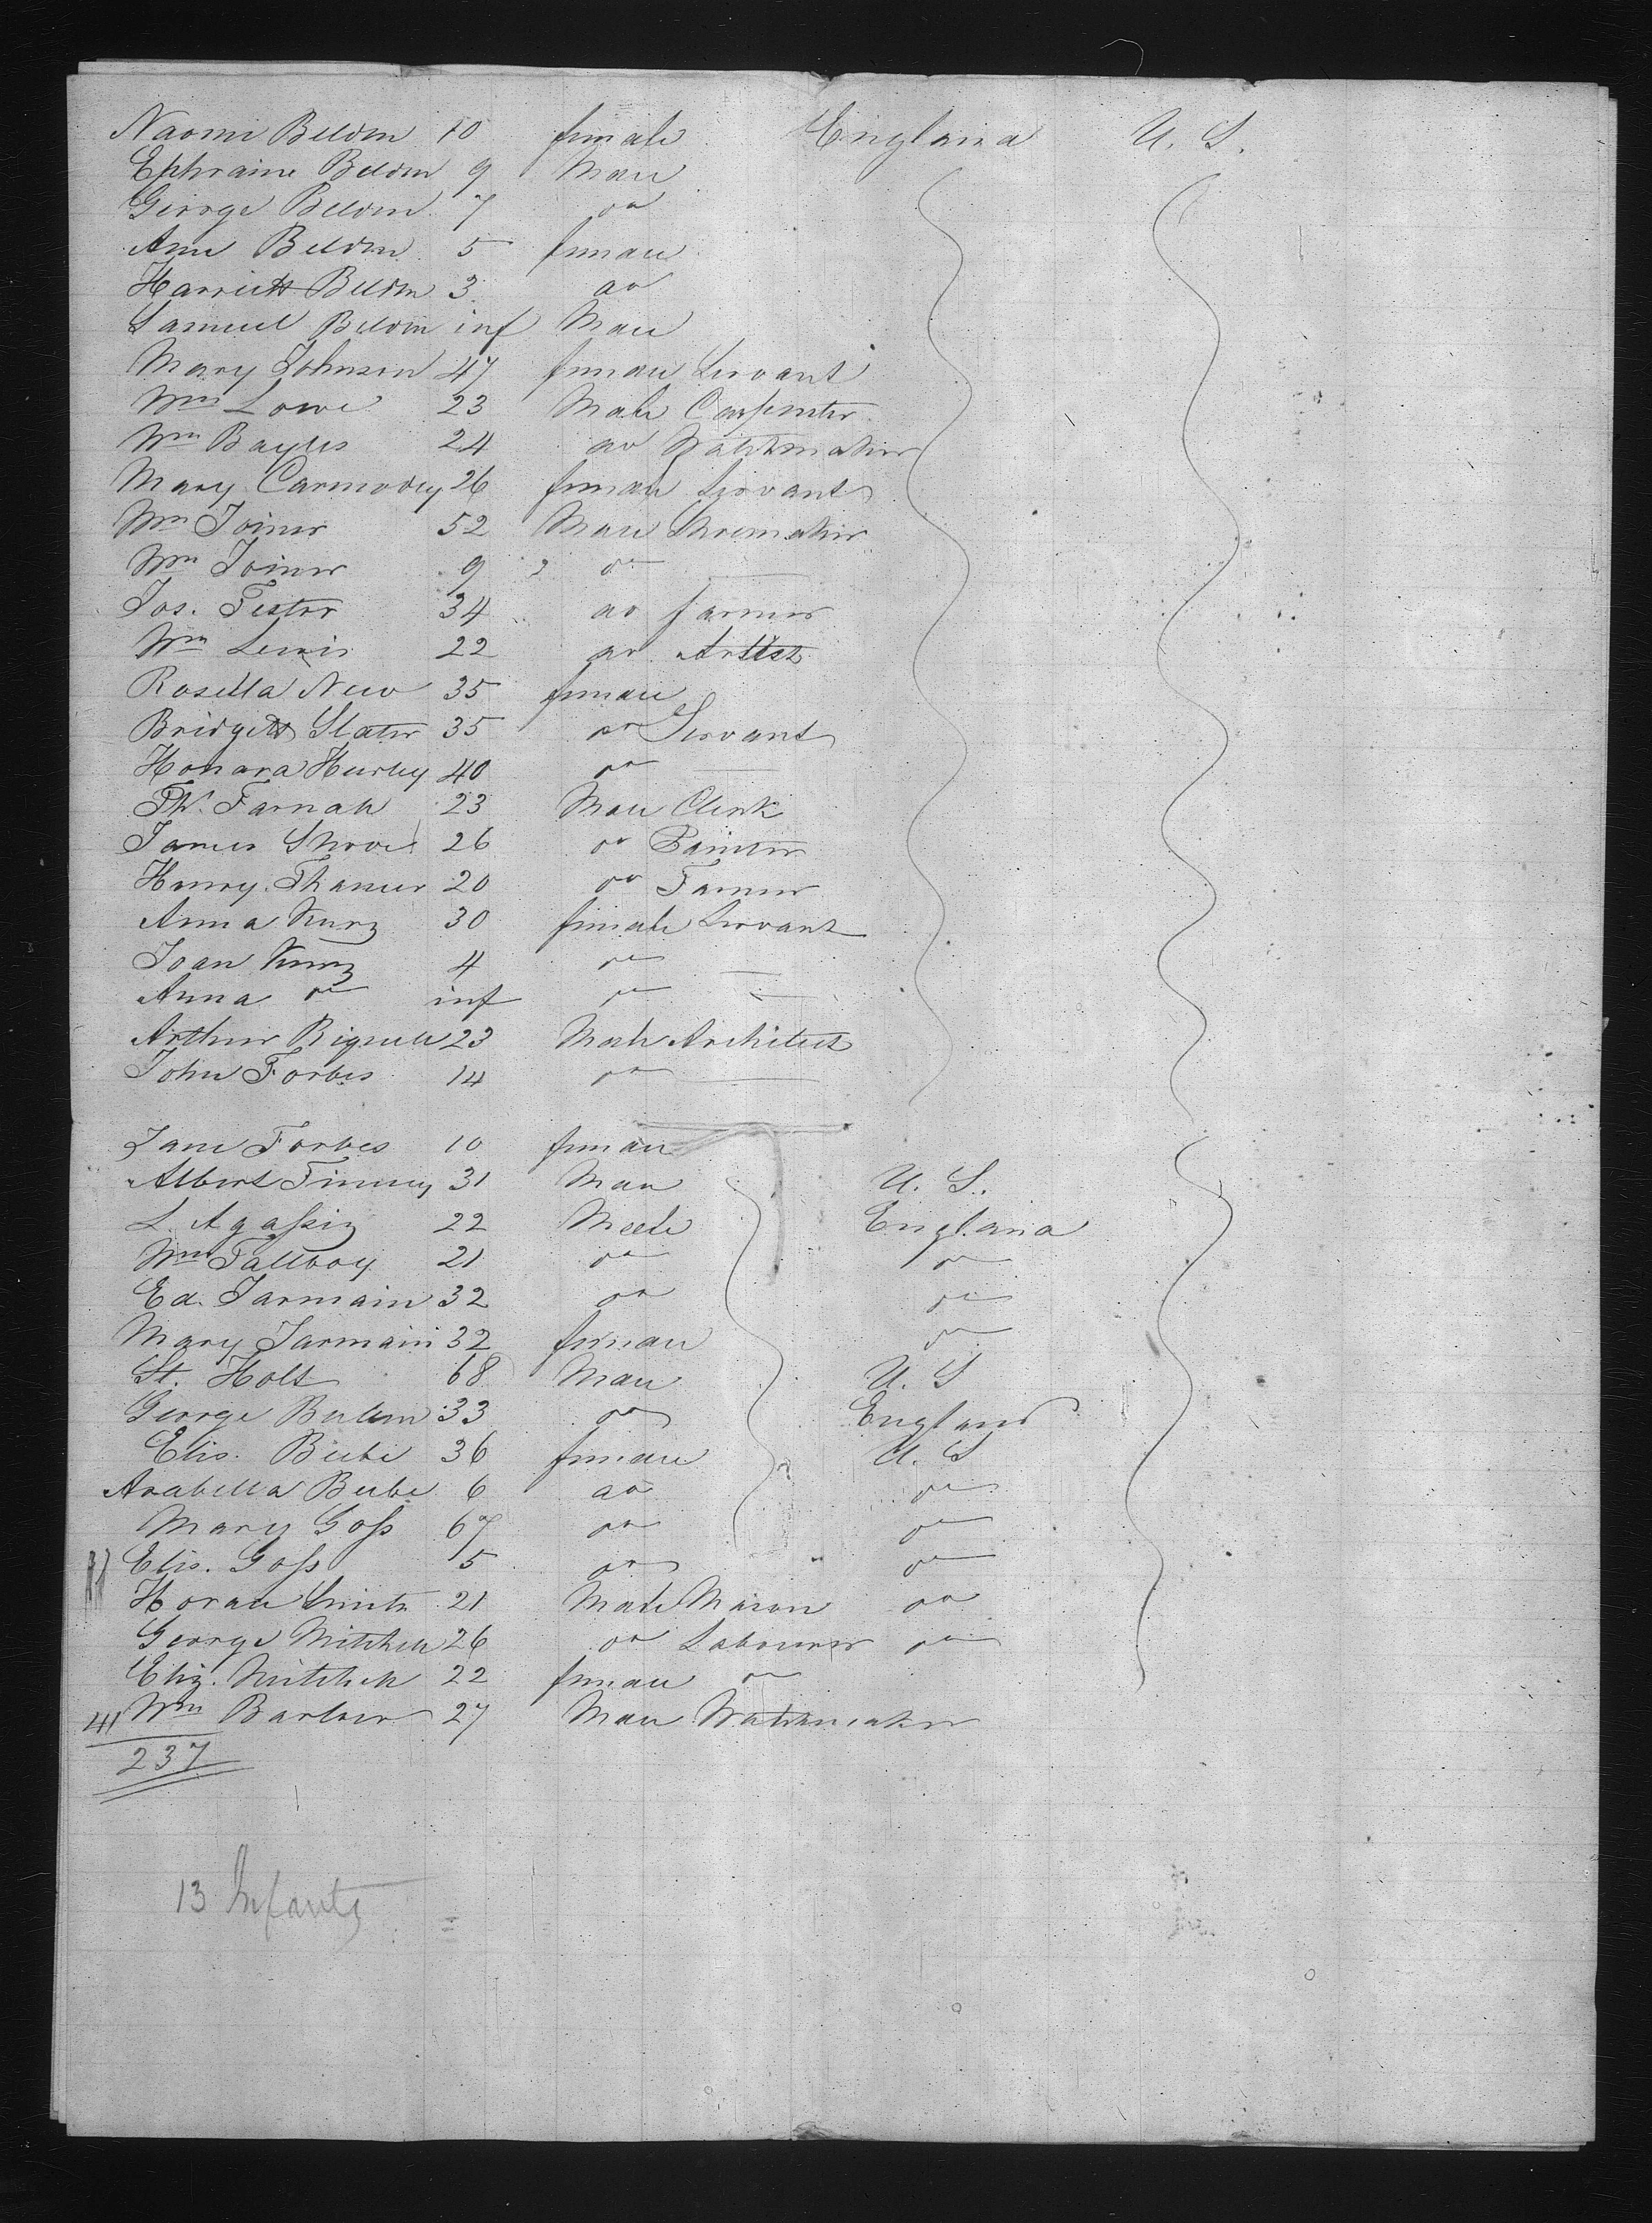 Naomi Beldin 10 female England U. S.
Ephraim Beldin 9 Male
George Beldin 7 do
Ann Beldin 5 female
Harriett Beldin 3 do
Samuel Beldin inf Male
Mary Johnson 47 female Servant
Wm Lowe 23 Male Carpenter
Wm Bayles 24 do Watchmaker
Mary Carmody 26 female Servant
Wm Joiner 52 Male Shoemaker
Wm Joiner 9 do —
Jos. Tester 34 do farmer
Wm Lewis 22 do Artist
Rosella New 35 female
Bridgett Slater 35 do Servant
Honara Hurley 40 do —
Th. Farnah 23 Male Clerk
James Shove 26 do Painter
Henry Thamer 20 do Farmer
Anna Kurz 30 female Servant
Joan Kurz 4 do —
Anna do inf do —
Arthur Bignell 23 Male Architect
John Forbes 14 do —
Jane Forbes 10 female
Albert Finney 31 Male U. S.
L. Agassiz 22 Male England
Wm Tallboy 21 do do
Ed. Jarmain 32 do do
Mary Jarmain 32 female do
St. Holt 68 Male U. S
George 33 do England
Elis. Beebe 36 female U. S
Arabella Beebe 6 do do
Mary Goss 67 do do
Elis. Goss 5 do do
Horace Smith 21 Male Mason do
George Mitchell 26 do Labourer do
Eliz. Mitchell 22 female do
41 Wm Barlow 27 Male Watchmaker
237
13 Infants